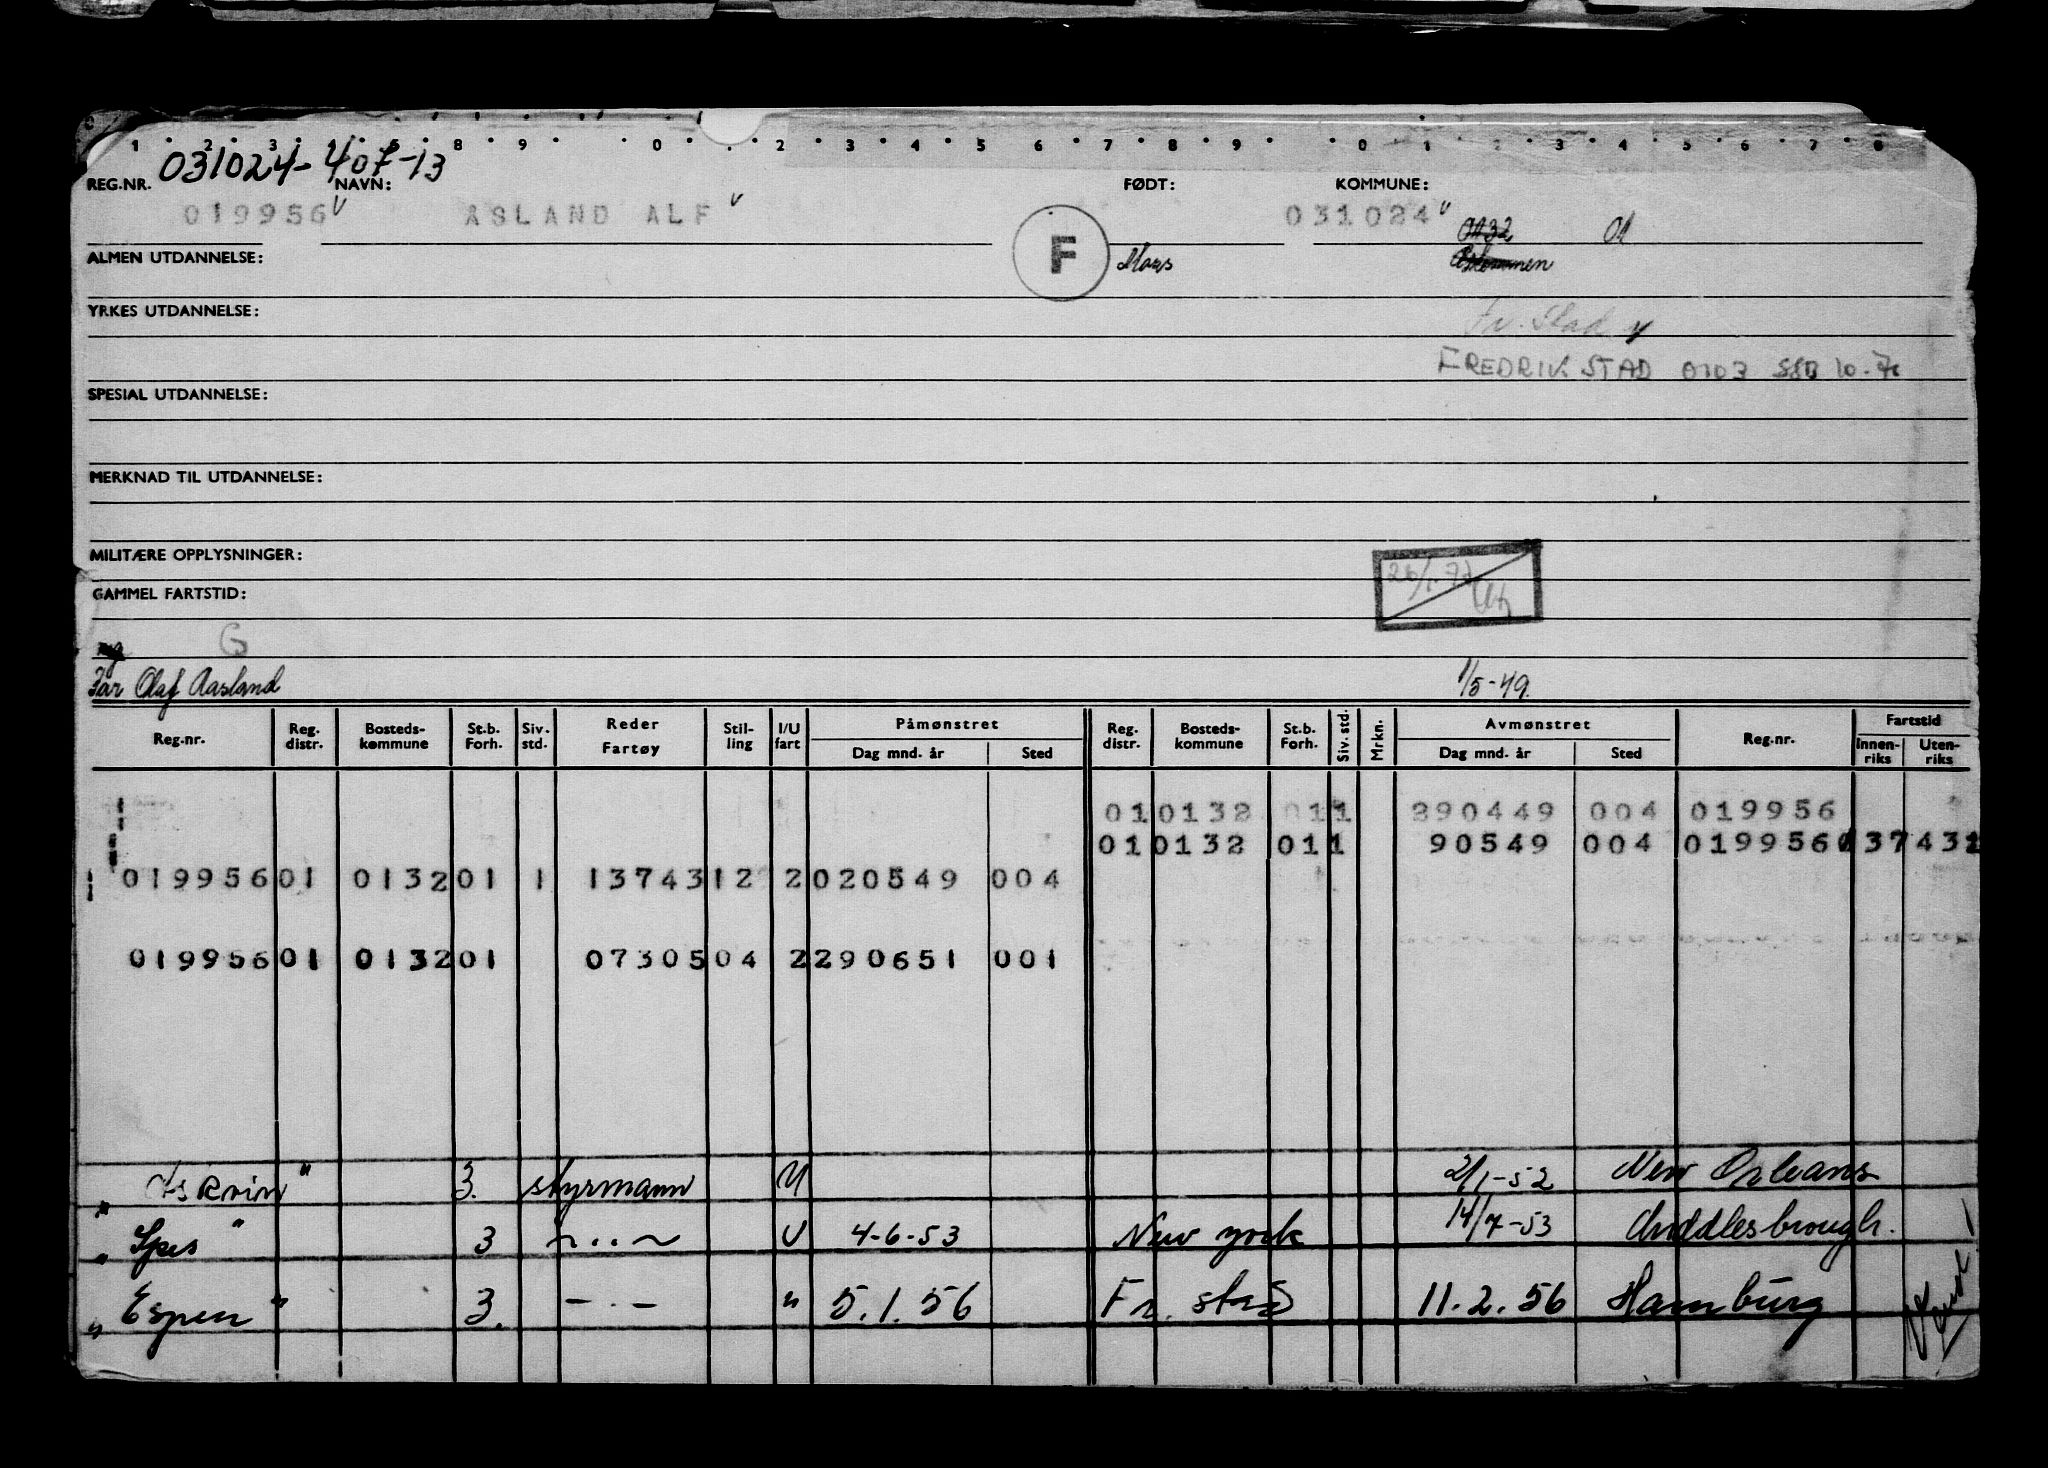 1 2 3 8 9 0 2 3 4 5 6 7 8 9 0 1 2 3 4 5 6 7 8
031024-407-13
REG.NR. NAVN: FØDT: KOMMUNE:
019956 ÅSLAND ALF 031024 0132 01
F
ALMEN UTDANNELSE:
YRKES UTDANNELSE:
Fr. Stad
FREDRIKSTAD 0103 SSB 10-70
SPESIAL UTDANNELSE:
MERKNAD TIL UTDANNELSE:
MILITÆRE OPPLYSNINGER:
GAMMEL FARTSTID:
G
Far Olaf Aasland 1/5-49.
Reg.nr. Reg. distr. Bosteds-kommune St.b. Forh. Siv. std. Reder Fartøy Stil-ling I/U fart Påmønstret Dag mnd. år Sted Reg. distr. Bosteds-kommune St.b. Forh. Siv. std. Mrkn. Avmønstret Dag mnd. år Sted Reg.nr. Fartstid Innen-riks Uten-riks
01 0132 01 1 290449 004 019956
01 0132 01 1 90549 004 019956 137431
019956 01 0132 01 1 13743 12 2 020549 004
019956 01 0132 01 07305 04 2 290651 001
" 3. styrmann U 2/1-52 New Orleans
" Spes " 3 -..- U 4-6-53 New york 14/7-53 Middlesbrough.
" Espen " 3. -.- " 5.1.56 Fr. stad 11.2.56 Hamburg